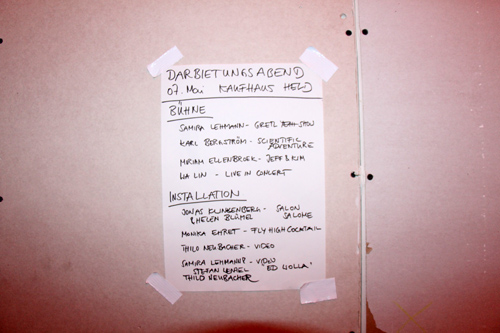 DARBIETUNGSABEND
07. Mai KAUFHAUS HELD
BÜHNE
SAMIRA LEHMANN - GRETL SHOW
KARL BERGSTRÖM - SCIENTIFIC
ADVENTURE
MIRIAM ELLENBROEK - JEFF & KIM
LIA LIN - LIVE IN CONCERT
INSTALLATION
JONAS KLINGENBERG - SALON
& HELEN BLÜMEL SALOME
MONIKA EHRET - FLY HIGH COCKTAIL
THILO NEUBACHER - VIDEO
SAMIRA LEHMANN - VIDEO
STEFAN ED
THILO NEUBACHER